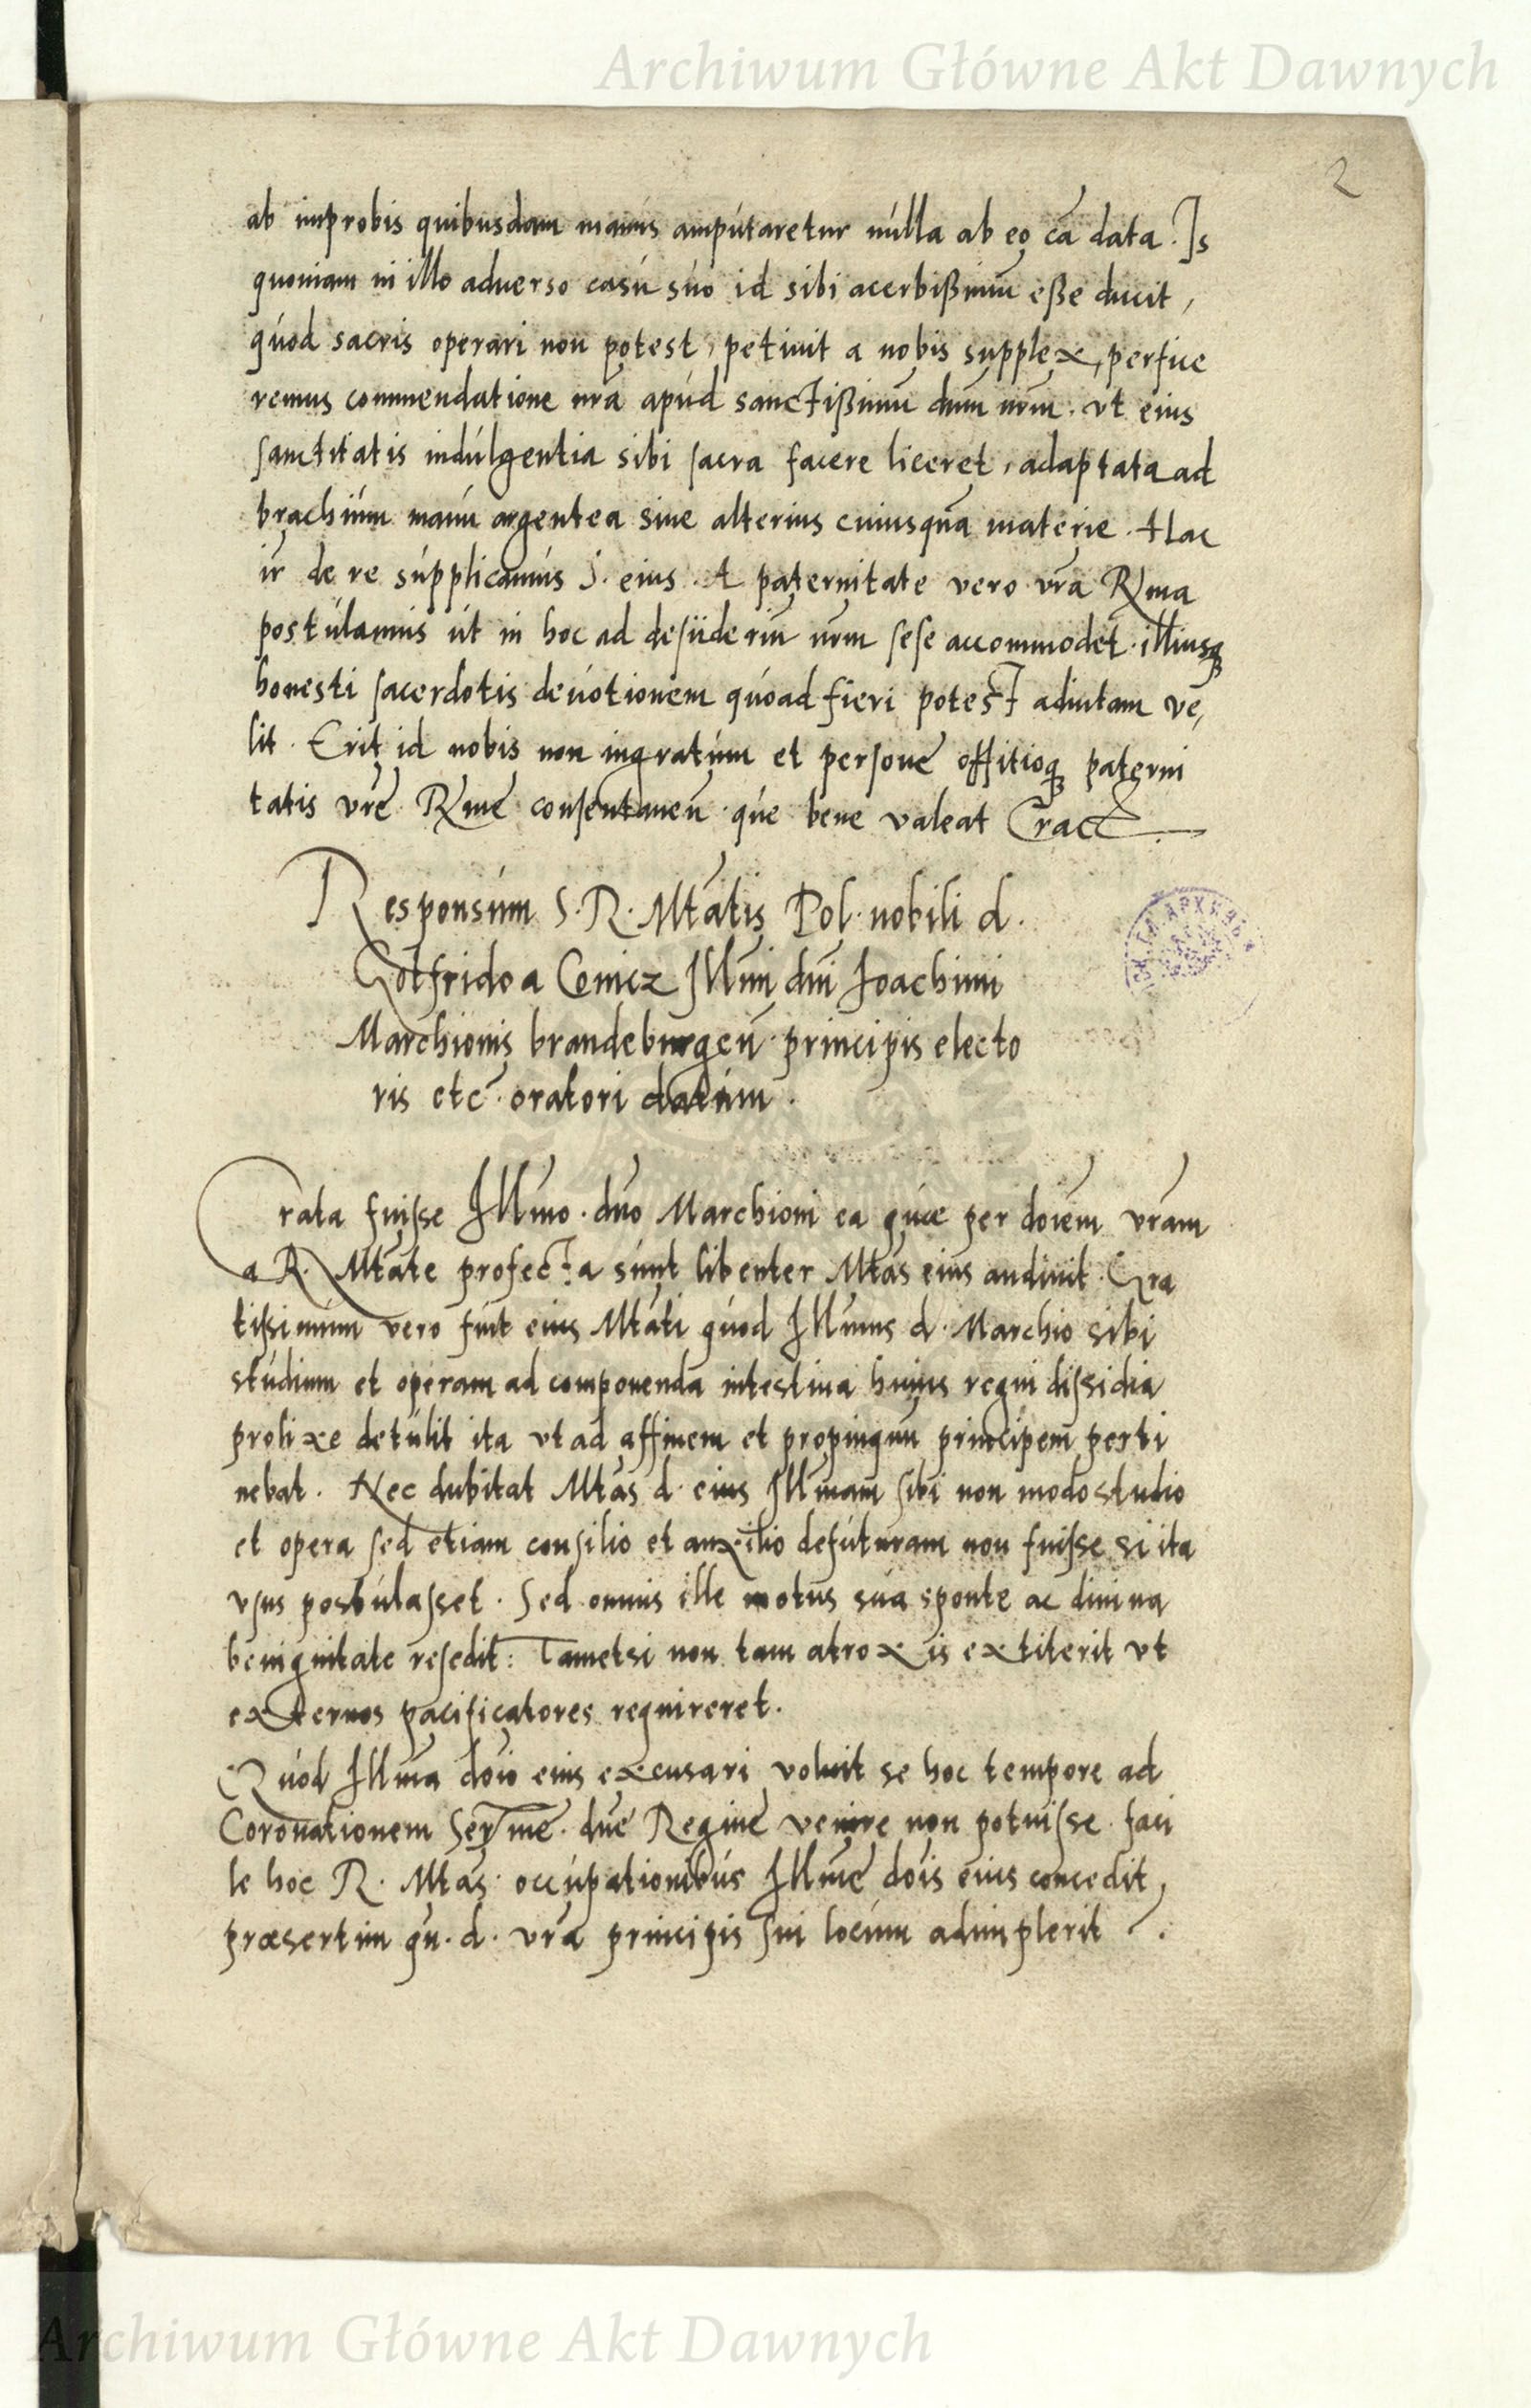 Archiwum Główne Akt Dawnych
2
ab improbis quibusdam manus amputaretur nulla ab eo cā data. Is
quoniam in illo adverso casu suo id sibi acerbißimū eße ducit,
quod sacris operari non potest, petiuit a nobis supplex, perfice
remus commendatione nrā apud sanctißimū dnm nrm. vt eius
sanctitatis indulgentia sibi sacra facere liceret, adaptata ad
brachium manu argentea siue alterius cuiusquā materie. Hac
ir de re supplicamus S. eius. A paternitate vero vrā Rma
postulamus ut in hoc ad desiideriū nrm sese accommodet. illiusq
honesti sacerdotis deuotionem quoad fieri potest adiutam ve,
lit. Erit id nobis non ingratum et persone offitioq paterni
tatis vrē Rme consentaneū. que bene valeat Crac
Responsum S. R. Mtātis Pol. nobili d.
Gotfrido a Cenicz Illmi dni Ioachimi
Marchionis brandeburgen̄. principis electo
ris etc̄. oratori datum.
Grata fuisse Illmo. dno Marchioni ea quæ per doiem vram
a R. Mtāte profecta sunt libenter Mtās eius audiuit. Gra
tissimum vero fuit eius Mtāti quod Illmus d. Marchio sibi
studium et operam ad componenda intestina huius regni dissidia
prolixe detulit ita vt ad affinem et propinquū principem perti
nebat. Nec dubitat Mtās d. eius Illmam sibi non modo studio
et opera sed etiam consilio et auxilio defuturam non fuisse si ita
vsus postulasset. Sed omnis ille motus sua sponte ac diuina
benignitate resedit: Tametsi non tam atrox is extiterit vt
externos pacificatores requireret.
Quod Illma doīo eius excusari voluit se hoc tempore ad
Coronationem Sermē. dnē Reginē venire non potuisse. faci
le hoc R. Mtās. occupationibus Illmē doīs eius concedit,
præsertim qu. d. vrā principis sui locum adimplerit.
Archiwum Główne Akt Dawnych